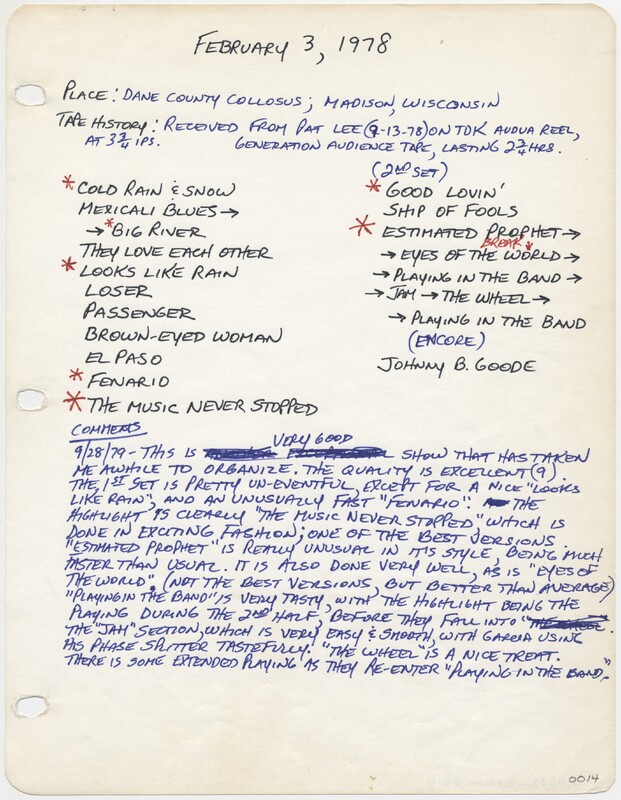 FEBRUARY 3, 1978
PLACE: DANE COUNTY COLLOSUS; MADISON, WISCONSIN
TAPE HISTORY: RECEIVED FROM PAT LEE (9-13-78) ON TDK AUDUA REEL,
AT 3 3/4 IPS. GENERATION AUDIENCE TAPE, LASTING 2 3/4 HRS.
* COLD RAIN & SNOW
MEXICALI BLUES →
→ * BIG RIVER
THEY LOVE EACH OTHER
* LOOKS LIKE RAIN
LOSER
PASSENGER
BROWN-EYED WOMAN
EL PASO
* FENARIO
* THE MUSIC NEVER STOPPED
(2ND SET)
* GOOD LOVIN'
SHIP OF FOOLS
* ESTIMATED PROPHET →
BREAK
→ EYES OF THE WORLD →
→ PLAYING IN THE BAND →
→ JAM → THE WHEEL →
→ PLAYING IN THE BAND
(ENCORE)
JOHNNY B. GOODE
COMMENTS
9/28/79 - THIS IS VERY GOOD SHOW THAT HAS TAKEN
ME AWHILE TO ORGANIZE. THE QUALITY IS EXCELLENT (9).
THE 1ST SET IS PRETTY UN-EVENTFUL, EXCEPT FOR A NICE "LOOKS
LIKE RAIN", AND AN UNUSUALLY FAST "FENARIO". THE
HIGHLIGHT IS CLEARLY "THE MUSIC NEVER STOPPED" WHICH IS
DONE IN EXCITING FASHION; ONE OF THE BEST VERSIONS.
"ESTIMATED PROPHET" IS REALLY UNUSUAL IN IT'S STYLE, BEING MUCH
FASTER THAN USUAL. IT IS ALSO DONE VERY WELL, AS IS "EYES OF
THE WORLD". (NOT THE BEST VERSIONS, BUT BETTER THAN AVERAGE)
"PLAYING IN THE BAND" IS VERY TASTY, WITH THE HIGHLIGHT BEING THE
PLAYING DURING THE 2ND HALF, BEFORE THEY FALL INTO
THE "JAM" SECTION, WHICH IS VERY EASY & SMOOTH, WITH GARCIA USING
HIS PHASE SPLITTER TASTEFULLY. "THE WHEEL" IS A NICE TREAT.
THERE IS SOME EXTENDED PLAYING AS THEY RE-ENTER "PLAYING IN THE BAND."
0014